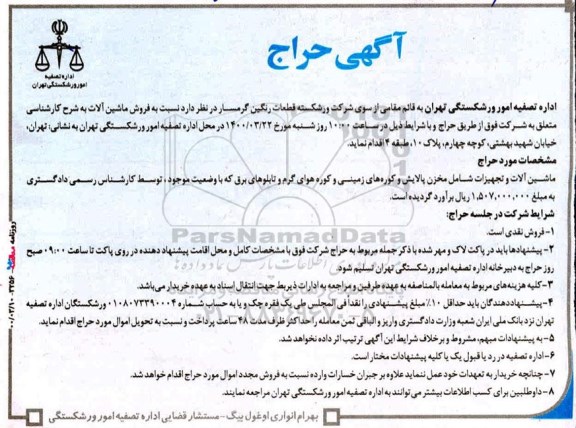 آگهی حراج
اداره تصفیه
امور ورشکستگی تهران
اداره تصفیه امور ورشکستگی تهران به قائم مقامی از سوی شرکت ورشکسته قطعات رنگین گرمسار در نظر دارد نسبت به فروش ماشین آلات به شرح کارشناسی
متعلق به شرکت فوق از طریق حراج و با شرایط ذیل در ساعت ۱۰:۰۰ روز شنبه مورخ ۱۴۰۰/۰۳/۲۲ در محل اداره تصفیه امور ورشکستگی تهران به نشانی: تهران،
خیابان شهید بهشتی، کوچه چهارم، پلاک ۱۰، طبقه ۴ اقدام نماید.
مشخصات مورد حراج
ماشین آلات و تجهیزات شامل مخزن پالایش و کوره‌های زمینی و کوره هوای گرم و تابلوهای برق که با وضعیت موجود، توسط کارشناس رسمی دادگستری
به مبلغ ۱,۵۰۷,۰۰۰,۰۰۰ ریال برآورد گردیده است.
شرایط شرکت در جلسه حراج:
۱- فروش نقدی است.
۲- پیشنهادها باید در پاکت لاک و مهر شده با ذکر جمله مربوط به حراج شرکت فوق با مشخصات کامل و محل اقامت پیشنهاد دهنده در روی پاکت تا ساعت ۰۹:۰۰ صبح
روز حراج به دبیرخانه اداره تصفیه امور ورشکستگی تهران تسلیم شود.
۳- کلیه هزینه‌های مربوط به معامله بالمناصفه به عهده طرفین و مراجعه به ادارات ذیربط جهت انتقال اسناد به عهده خریدار می‌باشد.
۴- پیشنهاددهندگان باید حداقل ۱۰٪ مبلغ پیشنهادی را نقداً فی المجلس طی یک فقره چک و یا به حساب شماره ۰۱۰۸۰۷۳۳۹۰۰۰۴ ورشکستگان اداره تصفیه
تهران نزد بانک ملی ایران شعبه وزارت دادگستری واریز و الباقی ثمن معامله را حداکثر ظرف مدت ۴۸ ساعت پرداخت و نسبت به تحویل اموال مورد حراج اقدام نماید.
۵- به پیشنهادات مبهم، مشروط و برخلاف شرایط این آگهی ترتیب اثر داده نخواهد شد.
۶- اداره تصفیه در رد یا قبول یک یا کلیه پیشنهادات مختار است.
۷- چنانچه خریدار به تعهدات خود عمل ننماید علاوه بر جبران خسارات وارده نسبت به فروش مجدد اموال مورد حراج اقدام خواهد شد.
۸- داوطلبین برای کسب اطلاعات بیشتر می‌توانند به اداره تصفیه امور ورشکستگی تهران مراجعه نمایند.
بهرام انواری اوغول بیگ - مستشار قضایی اداره تصفیه امور ورشکستگی
ParsNamadData
روزنامه